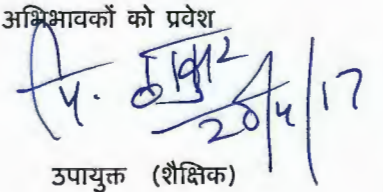 अभिभावकों को प्रवेश
20/4/17
उपायुक्त (शैक्षिक)